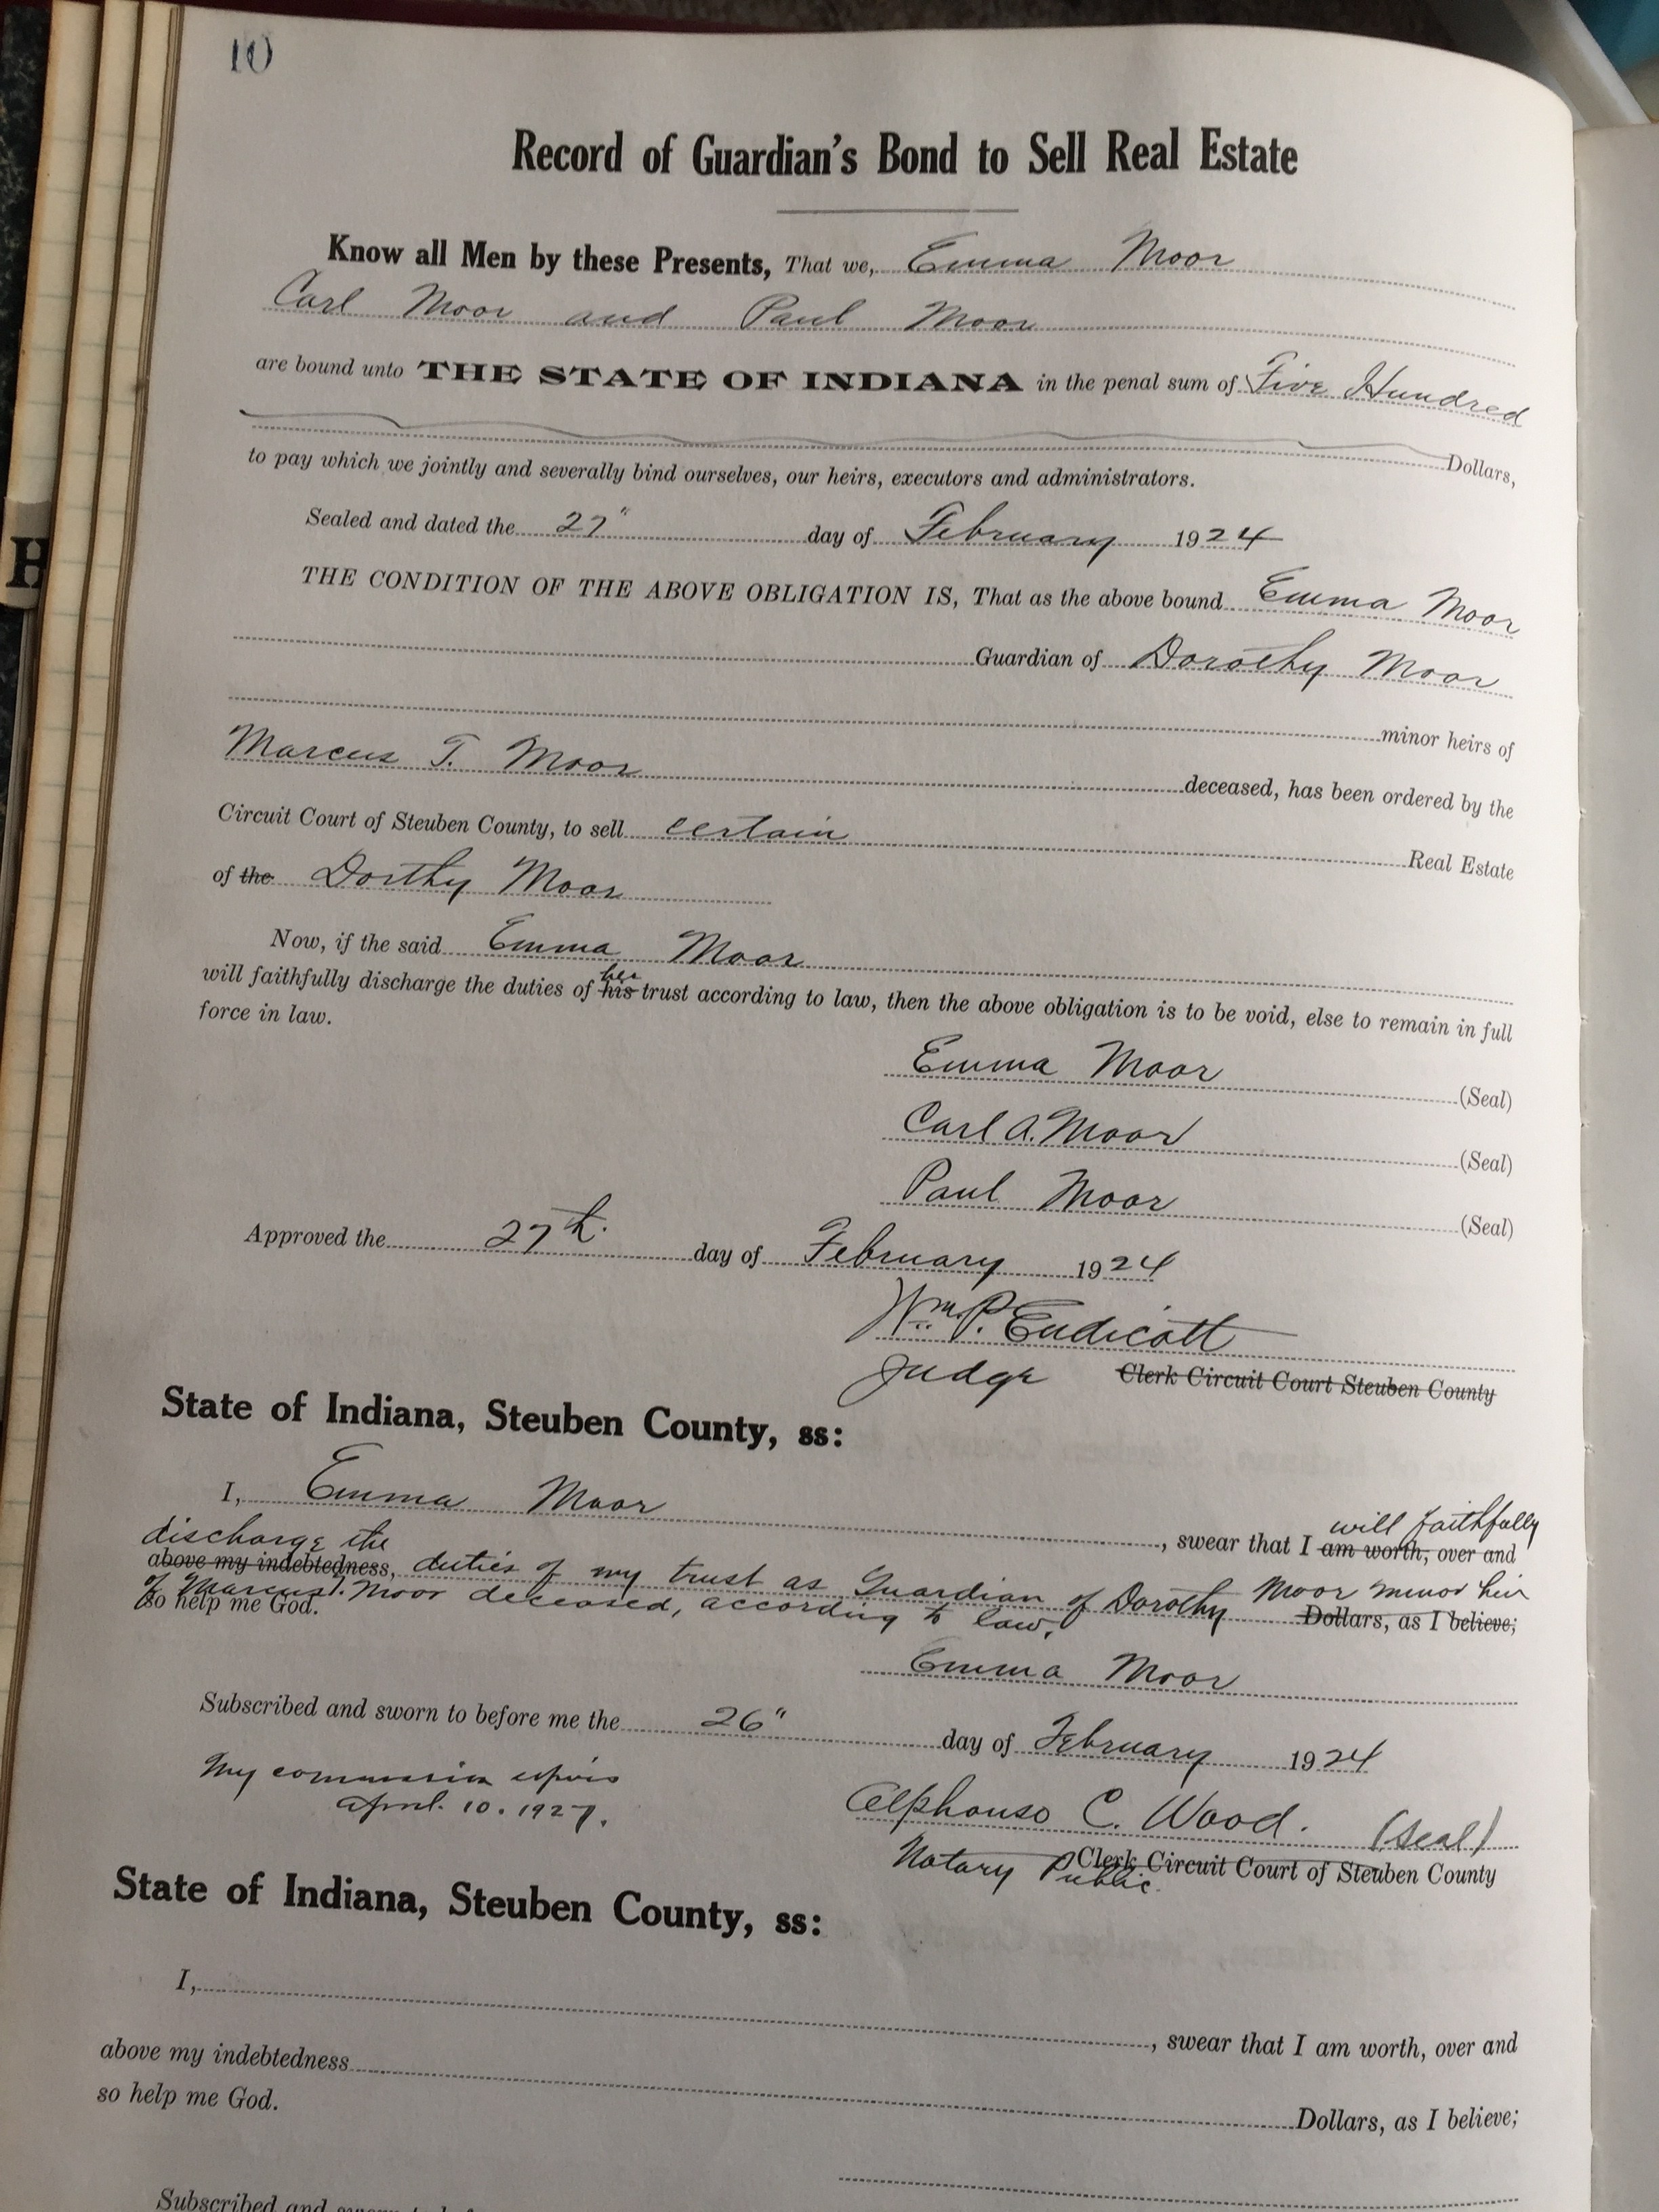 10
Record of Guardian's Bond to Sell Real Estate
Know all Men by these Presents, That we, Emma Moor
Carl Moor and Paul Moor
are bound unto THE STATE OF INDIANA in the penal sum of Five Hundred
Dollars,
to pay which we jointly and severally bind ourselves, our heirs, executors and administrators.
Sealed and dated the 27" day of February 1924
THE CONDITION OF THE ABOVE OBLIGATION IS, That as the above bound Emma Moor
Guardian of Dorothy Moor
minor heirs of
Marcus T. Moor deceased, has been ordered by the
Circuit Court of Steuben County, to sell certain Real Estate
of the Dorthy Moor
Now, if the said Emma Moor
her
will faithfully discharge the duties of his trust according to law, then the above obligation is to be void, else to remain in full
force in law.
Emma Moor (Seal)
Carl A. Moor (Seal)
Paul Moor (Seal)
Approved the 27th. day of February 1924
Wm. P. Endicott
Judge Clerk Circuit Court Steuben County
State of Indiana, Steuben County, ss:
I, Emma Moor, swear that I am worth, over and
will faithfully
discharge the
above my indebtedness, duties of my trust as Guardian of Dorothy Moor minor heir
of Marcus T. Moor deceased, according to law. Dollars, as I believe;
so help me God.
Emma Moor
Subscribed and sworn to before me the 26" day of February 1924
My commission expires
April. 10. 1927.
Alphonso C. Wood. (Seal)
Notary Public. Clerk Circuit Court of Steuben County
State of Indiana, Steuben County, ss:
I, , swear that I am worth, over and
above my indebtedness Dollars, as I believe;
so help me God.
Subscribed and
H